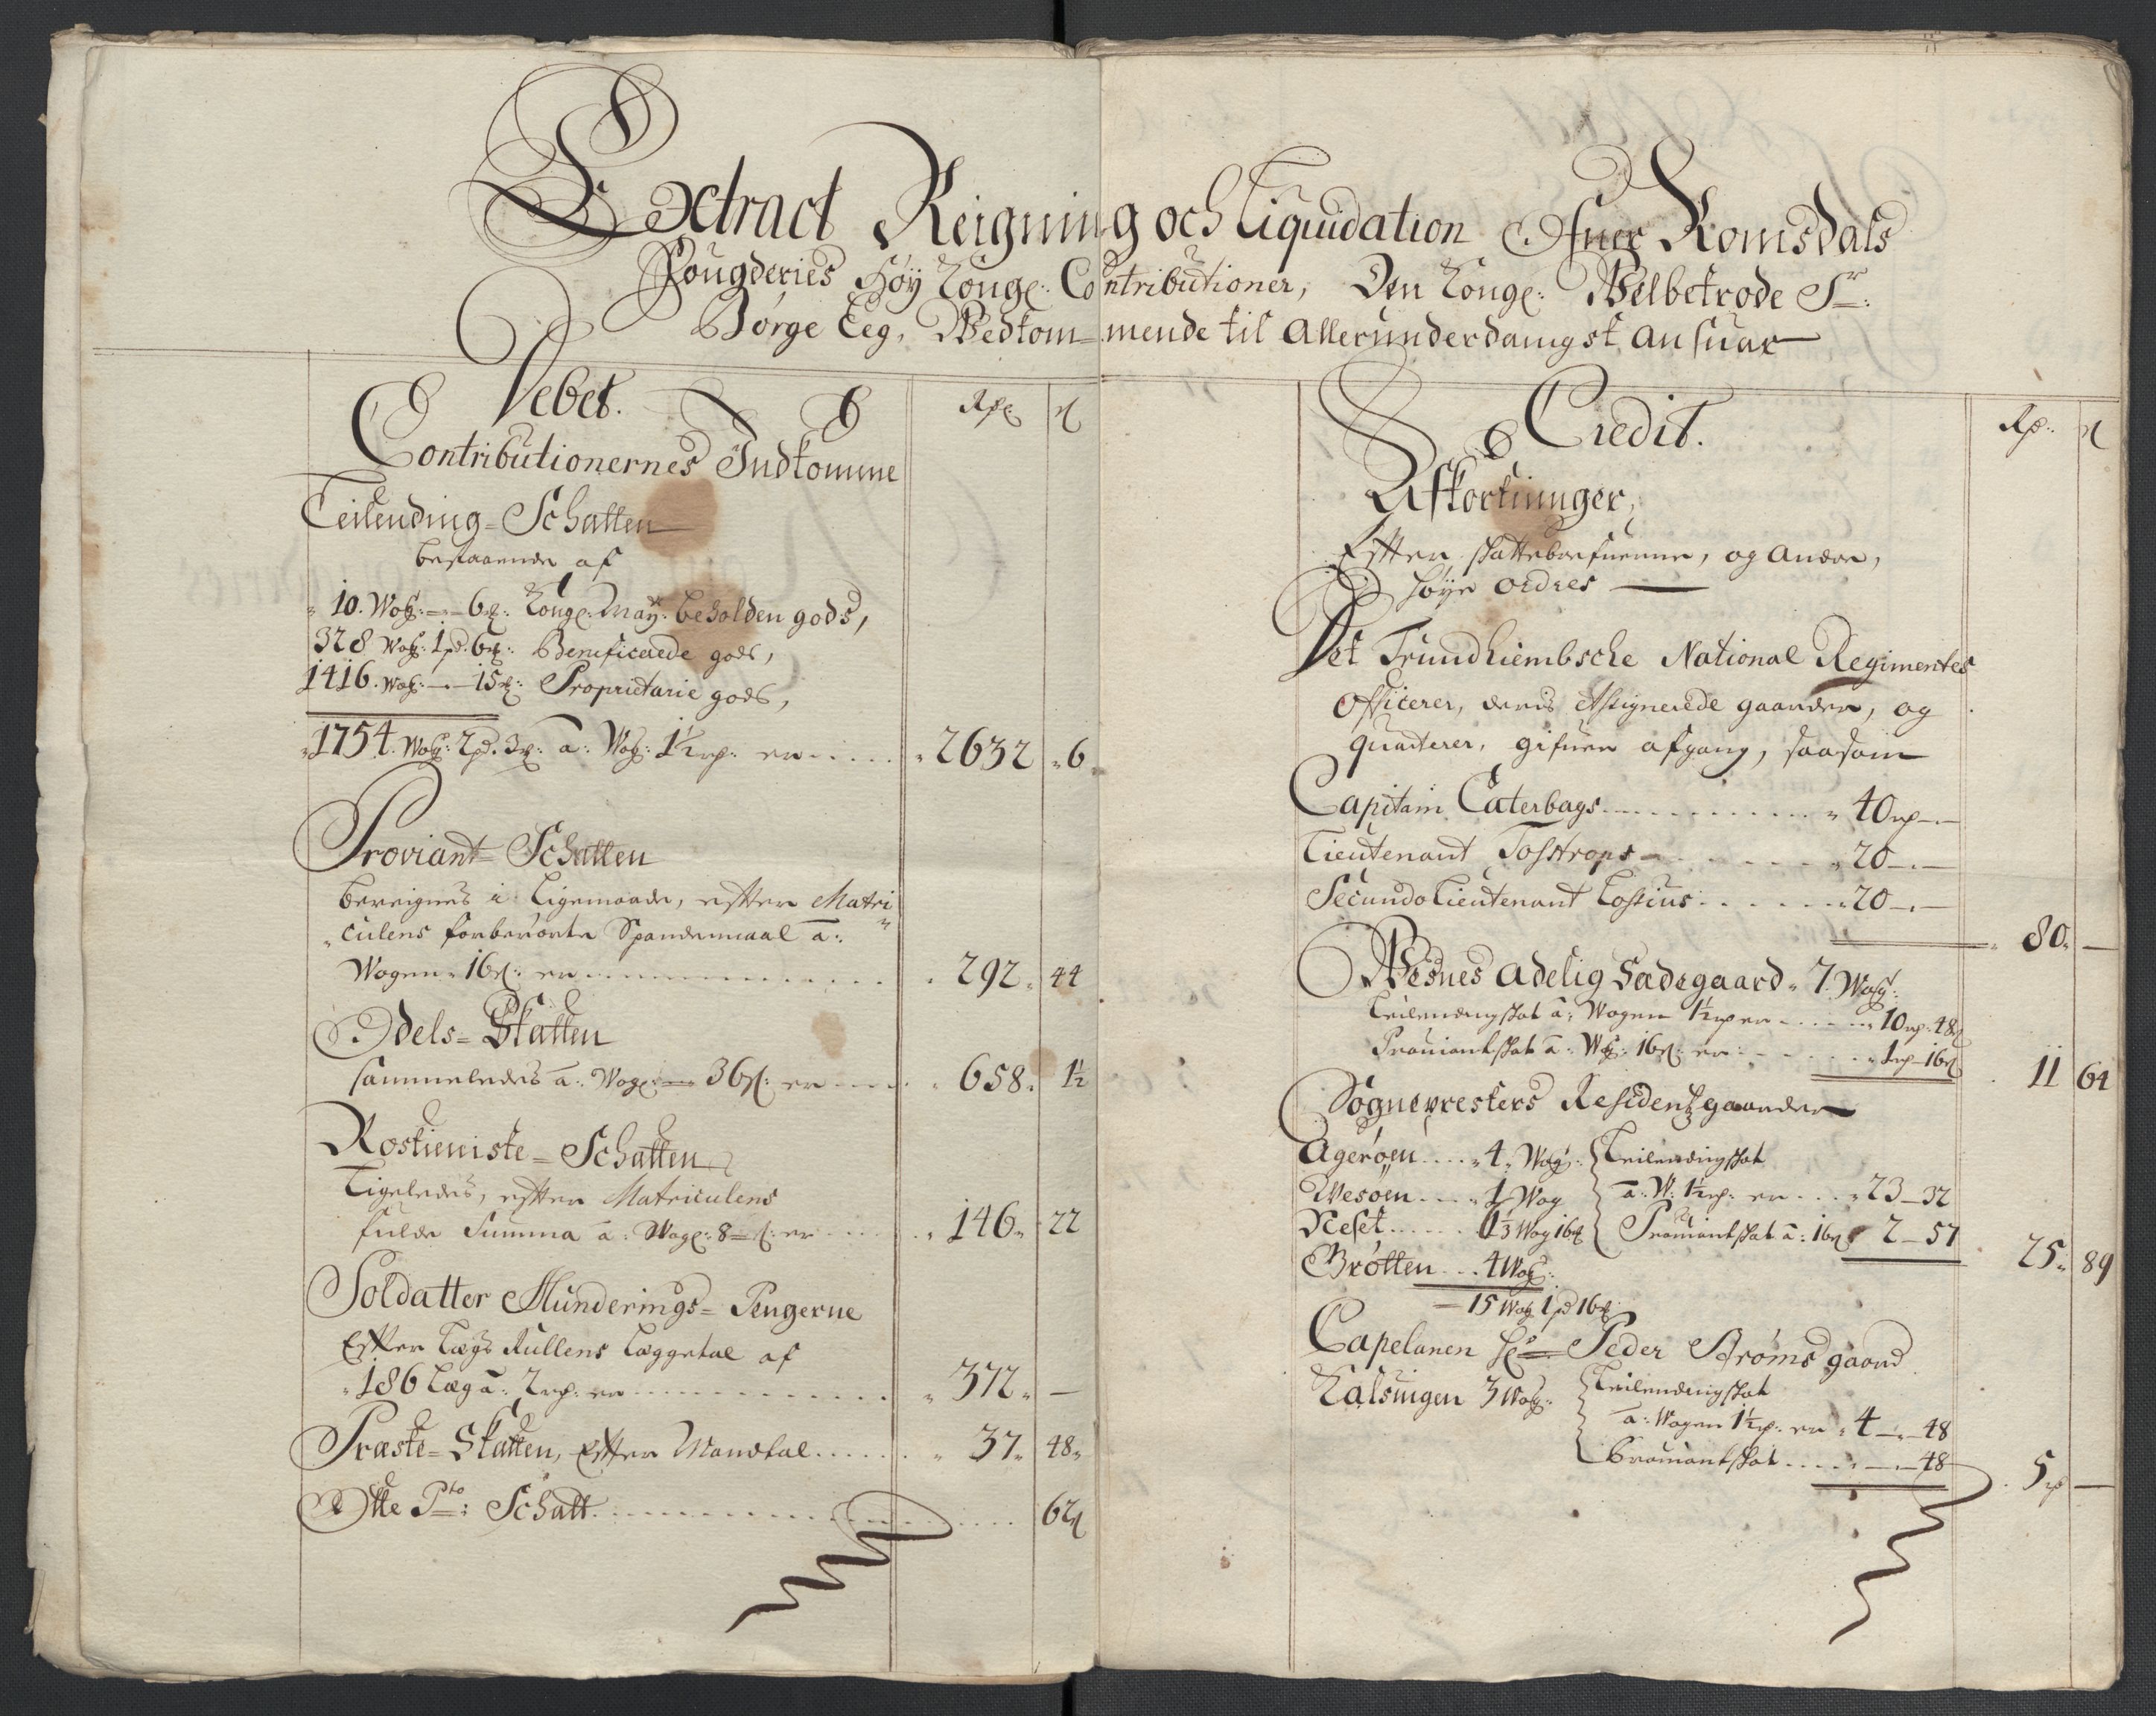 Extract Reigning och Liquidation Ofuer Romsdals
Fougderies Høy Kongl: Contributioner, Den Kongl: Welbetrode Sr:
Børge Eeg, Wedkom=mende til Allerunderdanigst Ansuar
Debet.
Rdl:
Contributionernes Indkomme
Leilending=Schatten
bestaaende af
10. Wog: — 6 Kongl: May: beholden gods,
328 Wog: 1 pd. 6 Benificerede gods,
1416. Wog: — 15 Proprietarie gods,
1754. Wog: 2 pd. 3 a: Wog: 1½ rd: er ..... 2632 6
Proviant=Schatten
bereignes i Ligemaade, efter Matri
culens forberørte Spandemaal a:
Wogen 16 s: er ............ 292 44
Odels=Skatten
sammeledes a: Wogl: 36 s: er .... 658. 1½
Rostieniste=Schatten
Ligeledes, efter Matriculens
fulde Summa a: Wogl: 8 s: er .... 146 22
Soldatter Munderings=Pengerne
Efter Lægs Rullens Læggetal af
186 Læg a: 2 rd: er ............ 372 —
Præste=Skatten, Efter Mandtal ...... 37 48
Otte Pto: Schatt ............ 62
Credit.
Rd:
Afkortninger,
Efter skattebrefuenne, og andre,
høye ordres —
Det Trundhiembsche National Regimentes
Officerer, deris Assignerede gaarder, og
quarterer, gifuer afgang, saasom
Capitain Caterbags .......... 40 rd —
Lieutenant Tostrops ........ 20 —
Secundo Lieutenant Lossius ...... 20 —
80. —
Wesnes Adelig Sædegaard 7 Wog:
Leilendingskat a: Wogen 1½ rd er ..... 10 rd: 48
Prouiantskat a: Wog: 16 s: er ..... 1 rd 16
11 64
Sognepresters Residentzgaarder
Agerøen .... 4 Wog: Leilendingskat
Wesøen .... 1 Wog a: W: 1½ rd: er .... 23 — 32
Neset ..... Wog 16 Prouiantskat a: 16 2 — 57
25. 89
Grøtten ... 4 Wog:
15 Wog 1 pd 16
Capelanen Hr Peder Strøms gaard
Kalsuigen 3 Wog: Leilendingskat
a: Wogen 1½ rd: er 4 — 48
Prouiantskat ..... — 48
5 rd —